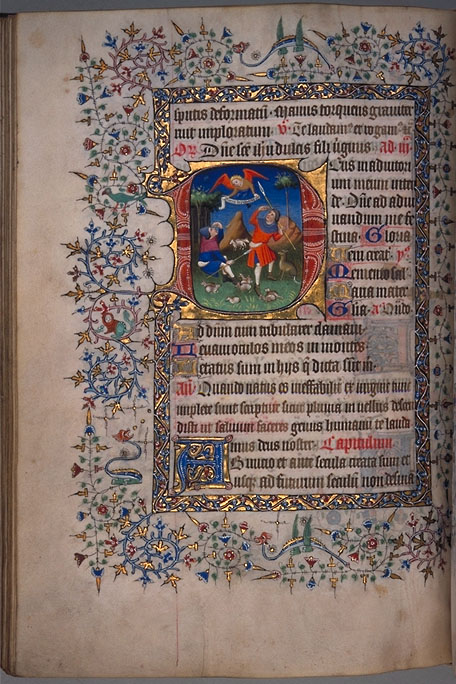 sputis deformatū. Manus torques grauiter
uit implicatum. V. Te laudam⁹ et rogam⁹ ac
Or. Dn̄e sce ihū dulcis fili uginis ad iij
Deus in adiutori
um meum inte
de. Dn̄e ad adiu
uandum me fe
stina. Gloria
Sicut erat. ym̄
Memento sal
Maria mater
Gl̄ia. a. Quādo
Ad dn̄m cum tribularer clamaui
Leuaui oculos meos in montes
Letatus sum in hijs q̄ dicta sūt m̄
an. Quando natus es ineffabilit̄ ex uirgine tunc
implete sunt scripture sicut pluuia in uellus descen
disti ut saluum faceres genus humanū te laud
amus deus noster. Capitulum.
Ab inicio et ante secula creata sum et
usq̄ ad futurum seculū non desinā